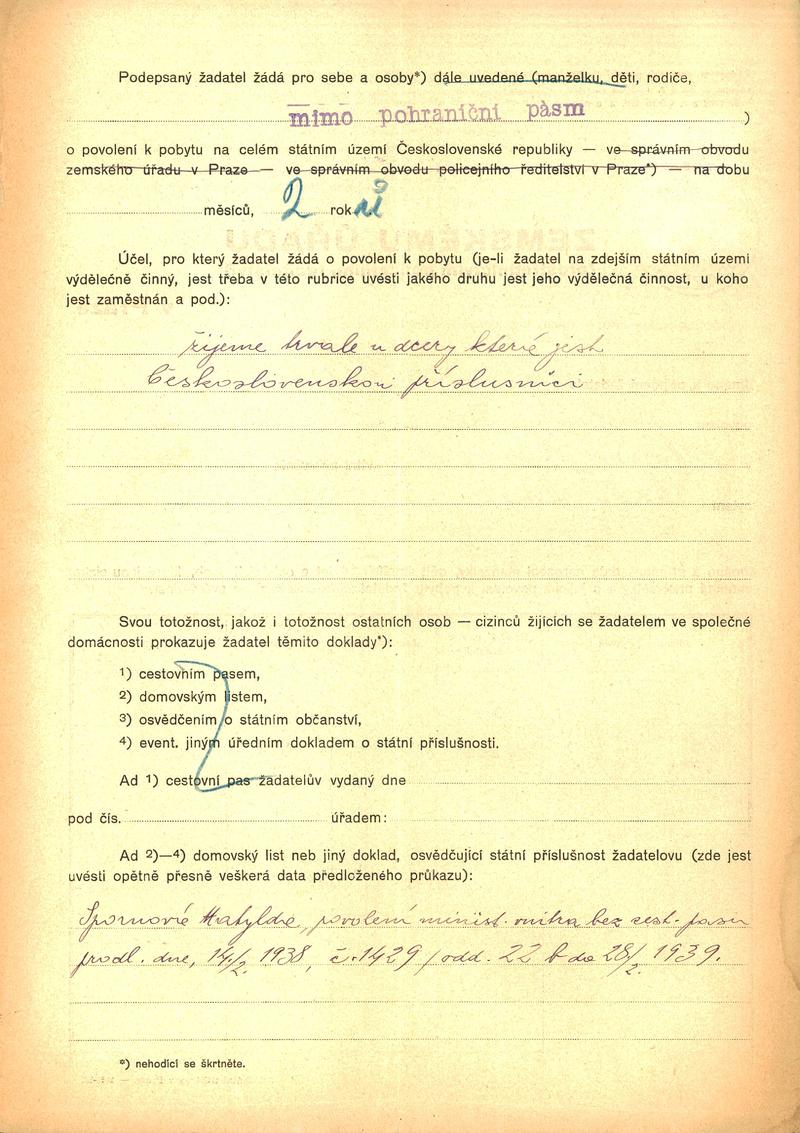 Podepsaný žadatel žádá pro sebe a osoby*) dále uvedené (manželku, děti, rodiče,
mimo pohraniční pásm )
o povolení k pobytu na celém státním území Československé republiky — ve správním obvodu
zemského úřadu v Praze — ve správním obvodu policejního ředitelství v Praze*) — na dobu
měsíců, 2 roků
Účel, pro který žadatel žádá o povolení k pobytu (je-li žadatel na zdejším státním území
výdělečně činný, jest třeba v této rubrice uvésti jakého druhu jest jeho výdělečná činnost, u koho
jest zaměstnán a pod.):
žijeme trvale u dcery které jest
Československou příslusnici
Svou totožnost, jakož i totožnost ostatních osob — cizinců žijících se žadatelem ve společné
domácnosti prokazuje žadatel těmito doklady*):
1) cestovním pasem,
2) domovským listem,
3) osvědčením o státním občanství,
4) event. jiným úředním dokladem o státní příslušnosti.
Ad 1) cestovní pas žadatelův vydaný dne
pod čís. úřadem:
Ad 2)—4) domovský list neb jiný doklad, osvědčující státní příslušnost žadatelovu (zde jest
uvésti opětně přesně veškerá data předloženého průkazu):
Matylde, povolení minist. vnitra bez cest. pasu
prodl. dne, 14/2. 1938, č. 1429/odd. 22 b do 28/2. 1939.
*) nehodící se škrtněte.